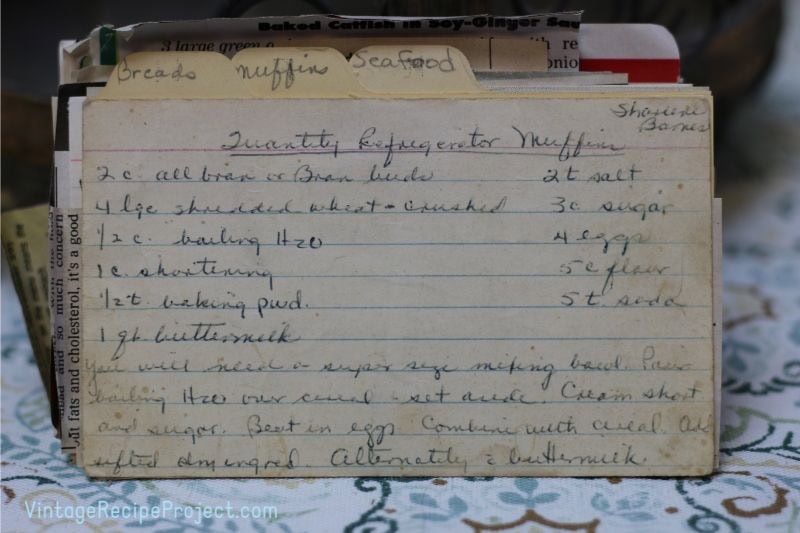 Baked Catfish in Soy-Ginger Sau
3 large green o
with re
onio
Breads
muffins
Seafood
Sharlene
Barnes
Quantity Refregerator Muffins
2 c. all bran or Bran buds 2 t salt
4 lge shredded wheat - crushed 3c sugar
1/2 c. boiling H20 4 eggs
1 c. shortening 5 c flour
1/2 t. baking pwd. 5 t. soda
1 qt. buttermilk
You will need a super size mixing bowl. Pour
boiling H20 over cereal - set aside. Cream short
and sugar. Beat in eggs. Combine with cereal. Add
sifted dry ingred. Alternately c buttermilk.
and so much concern
fats and cholesterol, it's a good
VintageRecipeProject.com